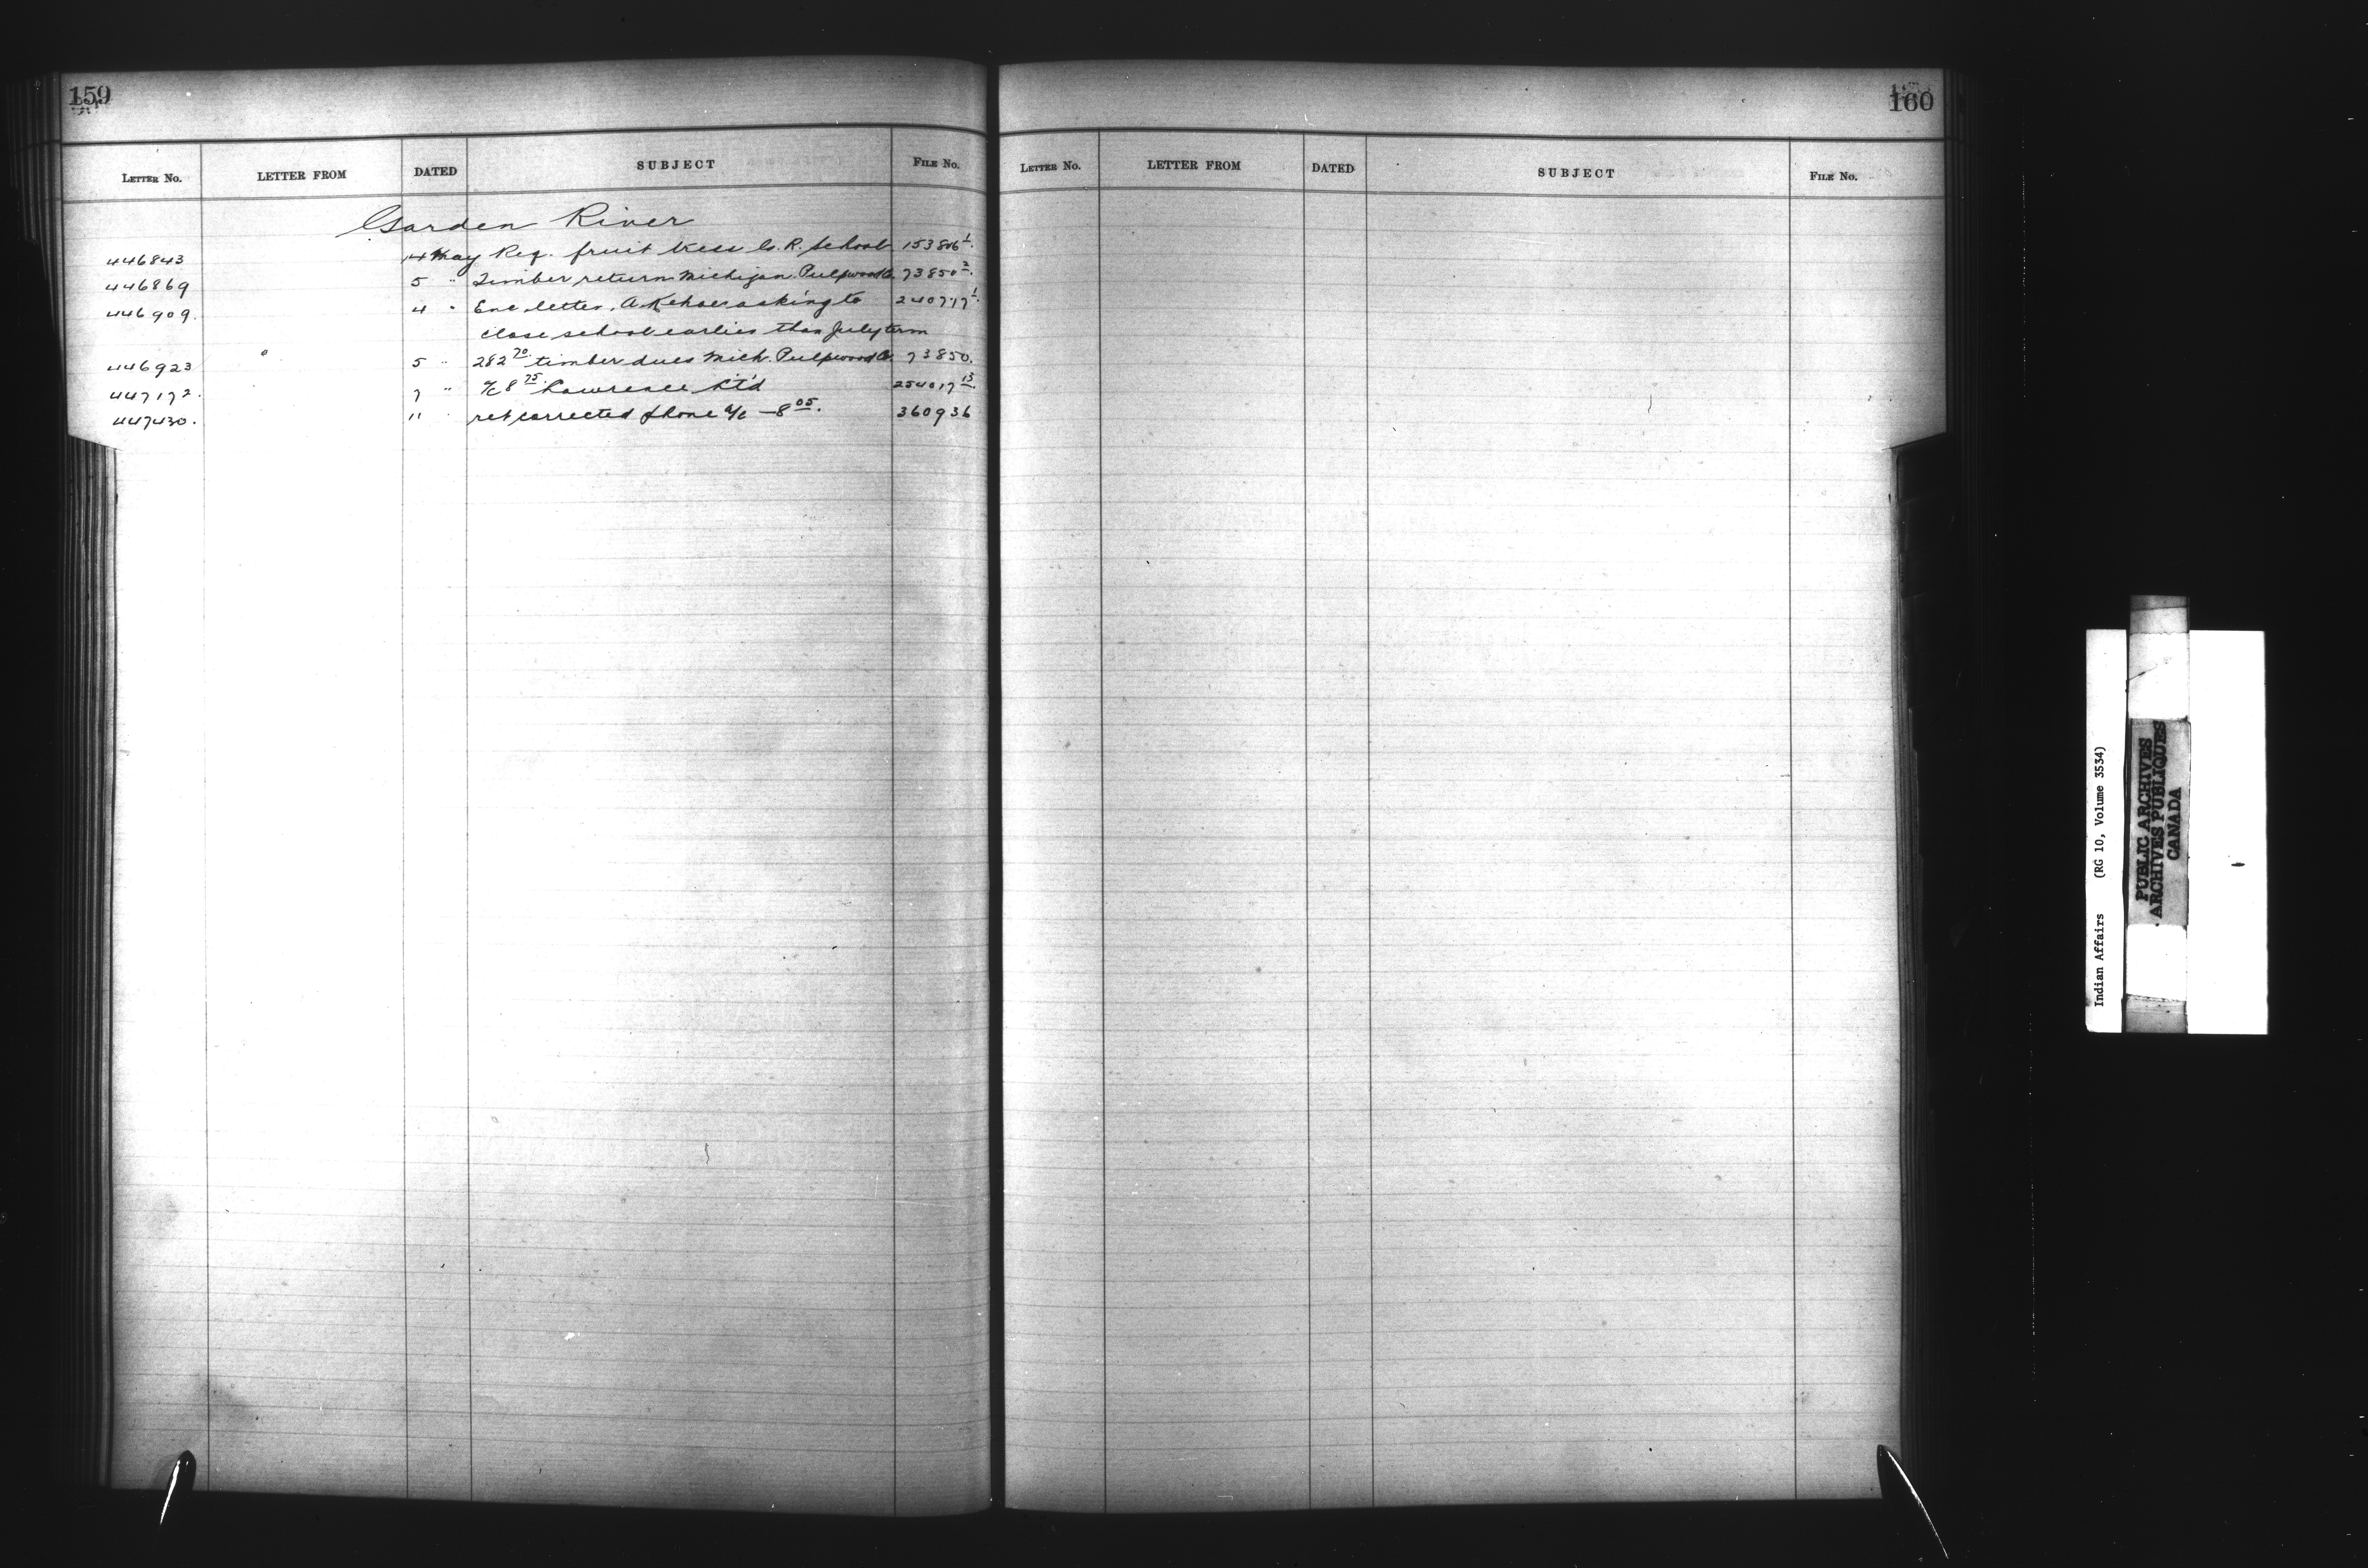 159
LETTER No. LETTER FROM DATED SUBJECT FILE No.
Garden River
446843 14 May Req. fruit trees G. R. School 153806 1
446869 5 " Timber return Michigan Pulpwood Co. 73850 2
446909. 4 " Enc. letter, A Kehoe asking to 240717 1
close school earlier than July term
446923 5 " 282 70 timber dues Mich. Pulpwood Co. 73850.
447172. 7 " a/c 8 75 Lawrence Ltd 254017 13
447430. 11 " ret corrected phone a/c — 8 05. 360936
160
LETTER No. LETTER FROM DATED SUBJECT FILE No.
Indian Affairs (RG 10, Volume 3534)
PUBLIC ARCHIVES
ARCHIVES PUBLIQUES
CANADA